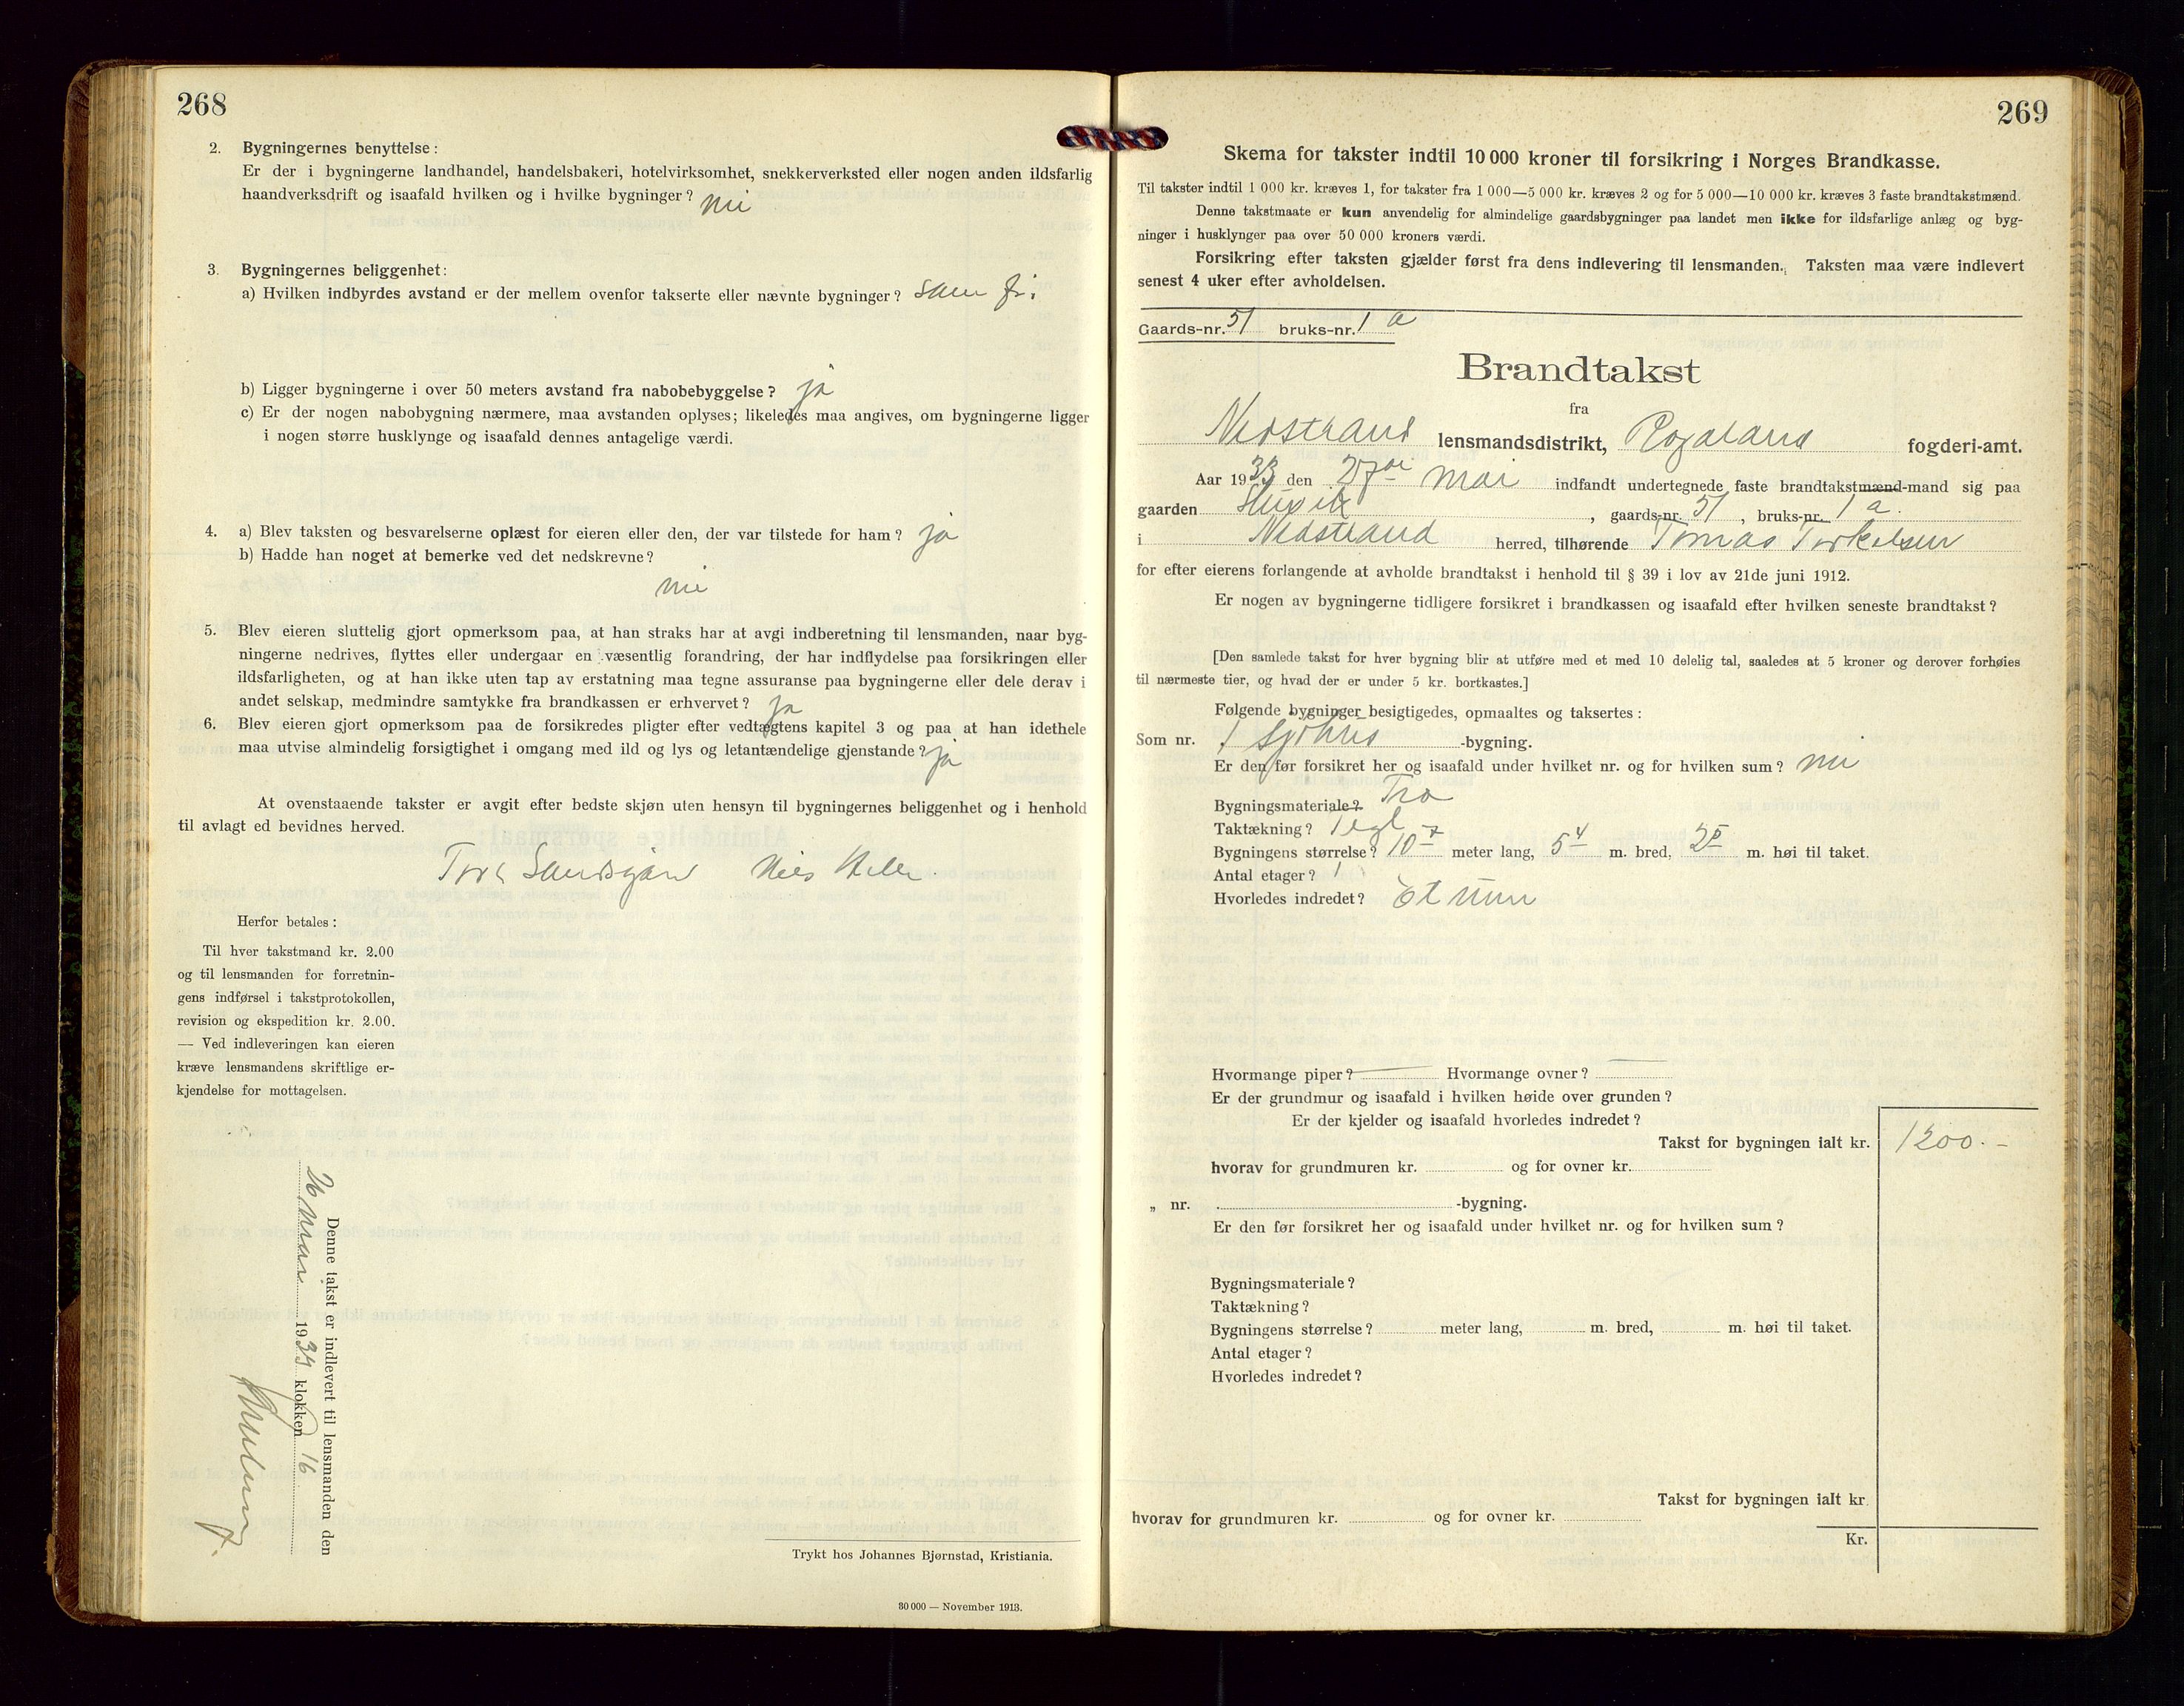 268
2. Bygningernes benyttelse:
Er der i bygningerne landhandel, handelsbakeri, hotelvirksomhet, snekkerverksted eller nogen anden ildsfarlig
haandverksdrift og isaafald hvilken og i hvilke bygninger? nei
3. Bygningernes beliggenhet:
a) Hvilken indbyrdes avstand er der mellem ovenfor takserte eller nævnte bygninger? sam før
b) Ligger bygningerne i over 50 meters avstand fra nabobebyggelse? ja
c) Er der nogen nabobygning nærmere, maa avstanden oplyses; likeledes maa angives, om bygningerne ligger
i nogen større husklynge og isaafald dennes antagelige værdi.
4. a) Blev taksten og besvarelserne oplæst for eieren eller den, der var tilstede for ham? ja
b) Hadde han noget at bemerke ved det nedskrevne?
nei
5. Blev eieren sluttelig gjort opmerksom paa, at han straks har at avgi indberetning til lensmanden, naar byg-
ningerne nedrives, flyttes eller undergaar en væsentlig forandring, der har indflydelse paa forsikringen eller
ildsfarligheten, og at han ikke uten tap av erstatning maa tegne assuranse paa bygningerne eller dele derav i
andet selskap, medmindre samtykke fra brandkassen er erhvervet? ja
6. Blev eieren gjort opmerksom paa de forsikredes pligter efter vedtægtens kapitel 3 og paa at han idethele
maa utvise almindelig forsigtighet i omgang med ild og lys og letantændelige gjenstande? ja
At ovenstaaende takster er avgit efter bedste skjøn uten hensyn til bygningernes beliggenhet og i henhold
til avlagt ed bevidnes herved.
Sandsgård Nils
Herfor betales:
Til hver takstmand kr. 2.00
og til lensmanden for forretnin-
gens indførsel i takstprotokollen,
revision og ekspedition kr. 2.00.
— Ved indleveringen kan eieren
kræve lensmandens skriftlige er-
kjendelse for mottagelsen.
Denne takst er indlevert til lensmanden den
26 mars 1934 klokken 16
Trykt hos Johannes Bjørnstad, Kristiania.
30 000 — November 1913.
269
Skema for takster indtil 10 000 kroner til forsikring i Norges Brandkasse.
Til takster indtil 1 000 kr. kræves 1, for takster fra 1 000—5 000 kr. kræves 2 og for 5 000—10 000 kr. kræves 3 faste brandtakstmænd.
Denne takstmaate er kun anvendelig for almindelige gaardsbygninger paa landet men ikke for ildsfarlige anlæg og byg-
ninger i husklynger paa over 50 000 kroners værdi.
Forsikring efter taksten gjælder først fra dens indlevering til lensmanden. Taksten maa være indlevert
senest 4 uker efter avholdelsen.
Gaards-nr. 51 bruks-nr. 1 a
Brandtakst
fra
Nedstrand lensmandsdistrikt, Rogaland fogderi-amt.
Aar 1933 den 27de mai indfandt undertegnede faste brandtakstmænd-mand sig paa
gaarden , gaards-nr. 51, bruks-nr. 1 a.
i Nedstrand herred, tilhørende Tomas Torkelsen
for efter eierens forlangende at avholde brandtakst i henhold til § 39 i lov av 21de juni 1912.
Er nogen av bygningerne tidligere forsikret i brandkassen og isaafald efter hvilken seneste brandtakst?
[Den samlede takst for hver bygning blir at utføre med et med 10 delelig tal, saaledes at 5 kroner og derover forhøies
til nærmeste tier, og hvad der er under 5 kr. bortkastes.]
Følgende bygninger besigtigedes, opmaaltes og taksertes:
Som nr. 1 sjøhus -bygning.
Er den før forsikret her og isaafald under hvilket nr. og for hvilken sum? nei
Bygningsmateriale? Træ
Taktækning? Tegl
Bygningens størrelse? 10 meter lang, 5 4 m. bred, 2 m. høi til taket.
Antal etager? 1
Hvorledes indredet? Et rum
Hvormange piper? Hvormange ovner?
Er der grundmur og isaafald i hvilken høide over grunden?
Er der kjelder og isaafald hvorledes indredet?
Takst for bygningen ialt kr. 1200.-
hvorav for grundmuren kr. og for ovner kr.
„ nr. -bygning.
Er den før forsikret her og isaafald under hvilket nr. og for hvilken sum?
Bygningsmateriale?
Taktækning?
Bygningens størrelse? meter lang, m. bred, m. høi til taket.
Antal etager?
Hvorledes indredet?
Takst for bygningen ialt kr.
hvorav for grundmuren kr. og for ovner kr.
Kr.